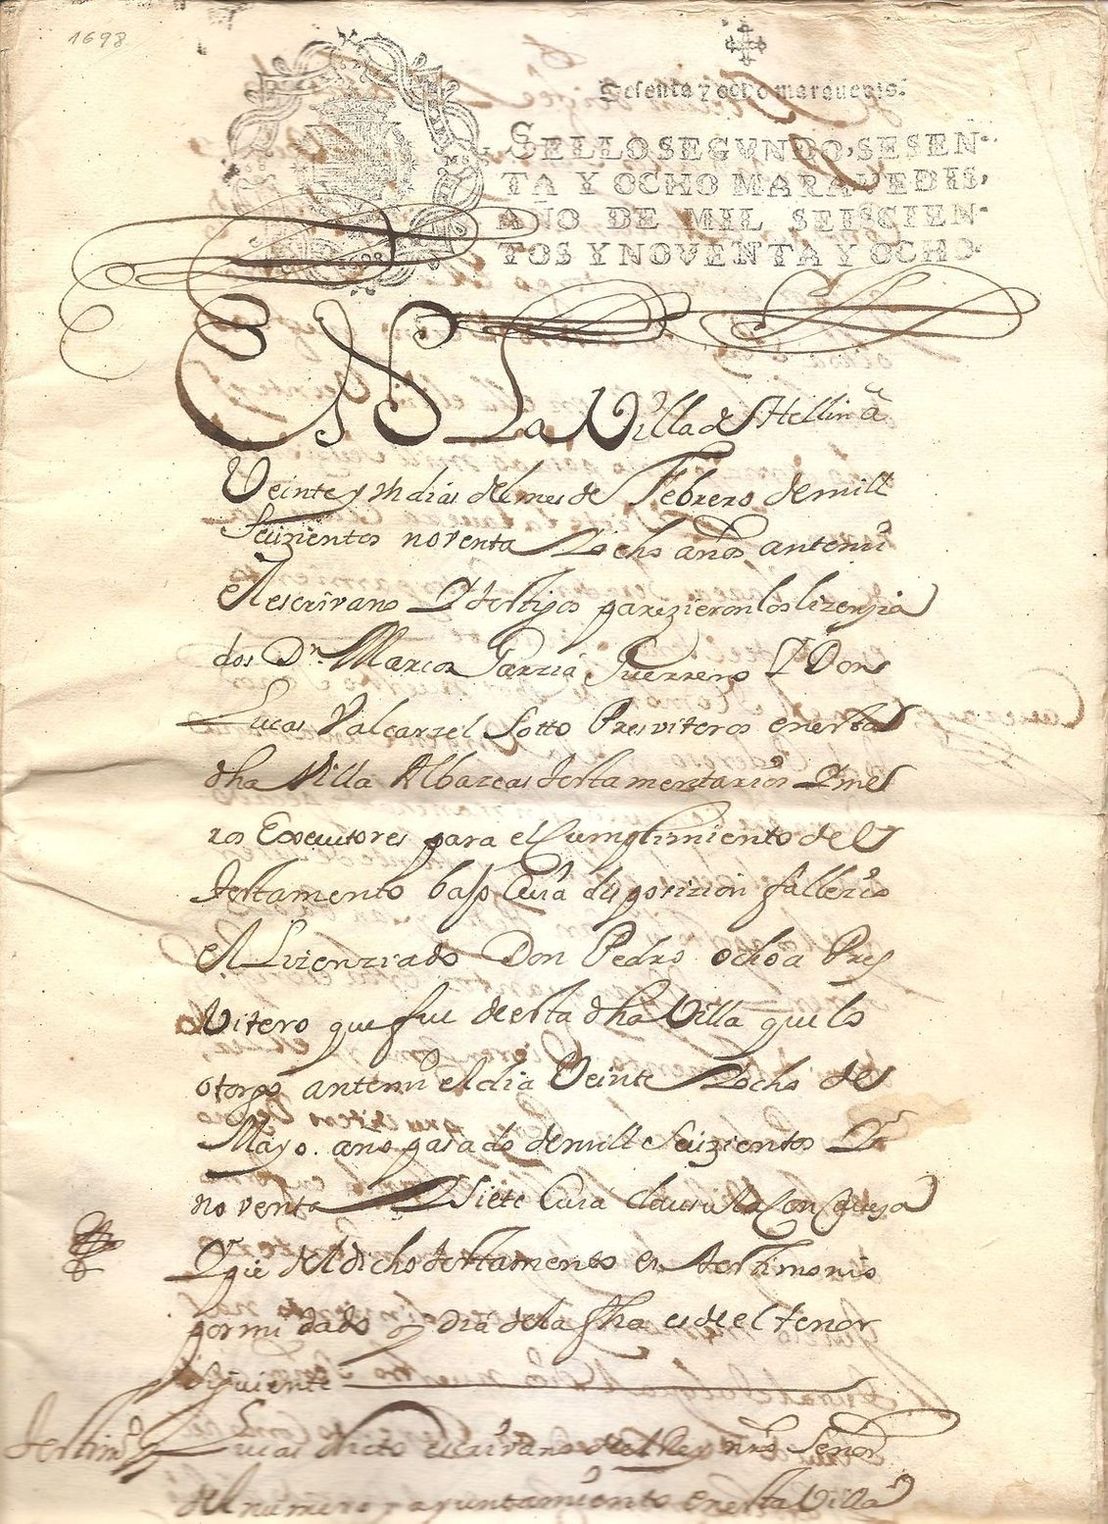 1698
Sesenta y ocho maravedis.
SELLO SEGVNDO, SESEN-
TA Y OCHO MARAVEDIS,
AÑO DE MIL SEISCIEN-
TOS Y NOVENTA Y OCHO.
EN La Villa de Hellin a
Veinte y Un dias del mes de Febrero de mill
seiszientos noventa y ocho años antemi
el escrivano y testigos parezieron los lizenzia
dos Dn. Marcos Garzia Guerrero y Don
Lucas Valcarzel Sotto Presviteros en esta
dha Villa Albazeas testamentarios y me
ros Executores para el Cumplimiento del
testamento bajo Cuia disposizion fallezio
el Lizenziado Don Pedro ochoa Pres
Vitero que fue de esta dha Villa que lo
otorgo antemi el dia Veinte y ocho de
Mayo año pasado de mill seiszientos y
noventa y Siete Cuia clausula con
y pie del dicho testamento en testimonio
por mi dado oy dia de la fha es de el tenor
siguiente
testimo Lucas escrivano del Rey nro Señor
del numero y ayuntamiento en esta Villa